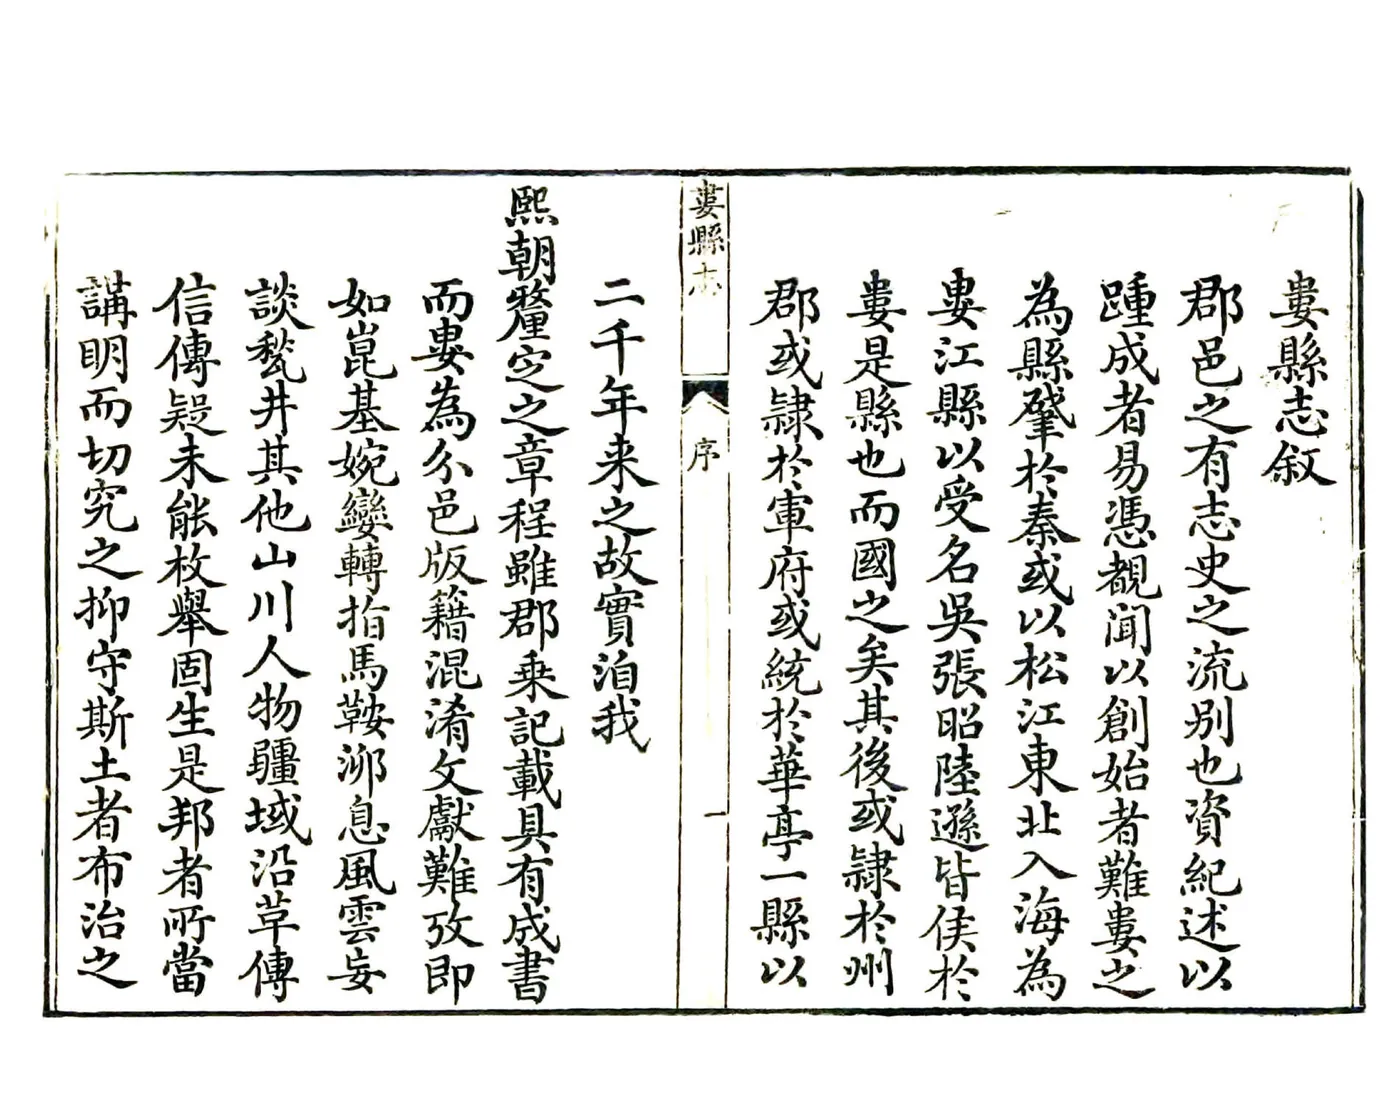 婁縣志敘
郡邑之有志史之流别也資紀述以
踵成者易憑覩聞以創始者難婁之
為縣肇於秦或以松江東北入海為
婁江縣以受名吳張昭陸遜皆侯於
婁是縣也而國之矣其後或隷於州
郡或隷於軍府或統於華亭一縣以
婁縣志
序
一
二千年来之故實洎我
熙朝釐定之章程雖郡乗記載具有成書
而婁為分邑版籍混淆文獻難攷即
如崑基婉孌轉指馬鞍泖息風雲妄
談甃井其他山川人物疆域沿革傳
信傳疑未能枚舉固生是邦者所當
講明而切究之抑守斯土者布治之